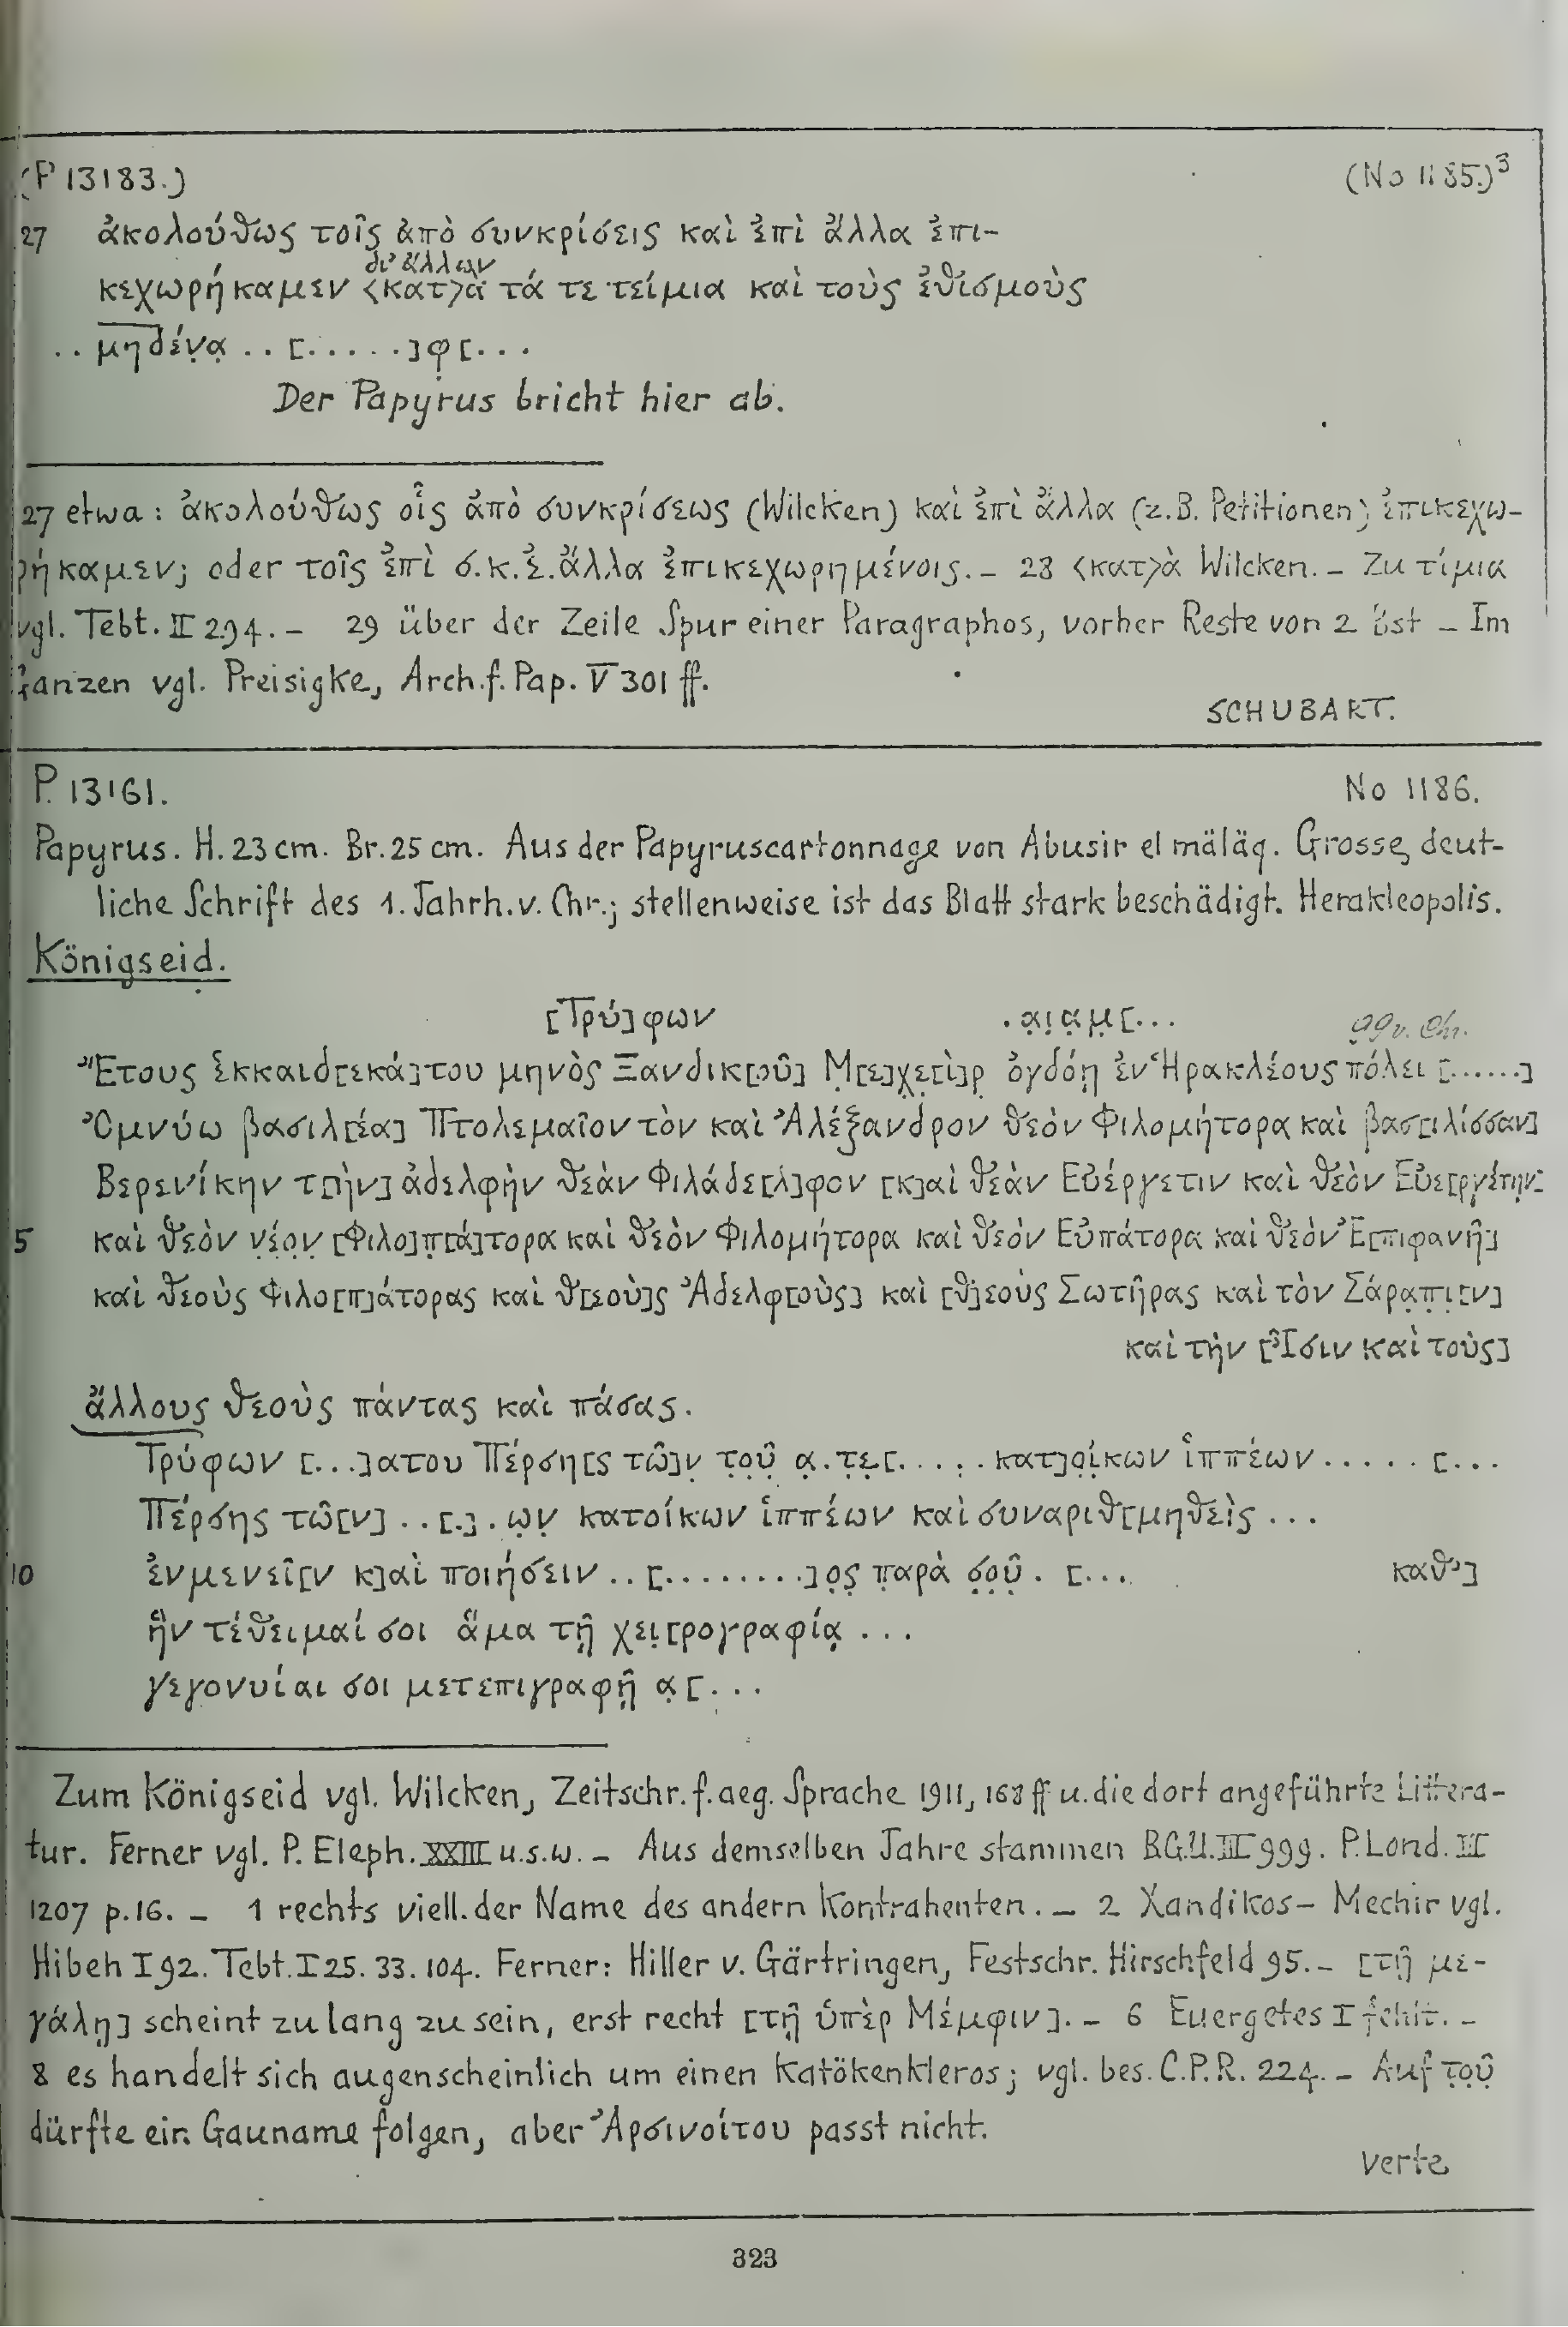 (P 13183.) (No 1185.)3
27 ἀκολούθως τοῖς ἀπὸ συνκρίσεις καὶ ἐπὶ ἄλλα ἐπι-
δι' ἄλλων
κεχωρήκαμεν <κατ>ὰ τά τε τείμια καὶ τοὺς ἐθισμοὺς
.. μηδένα .. [......]φ[...
Der Papyrus bricht hier ab.
27 etwa: ἀκολούθως οἷς ἀπὸ συνκρίσεως (Wilcken) καὶ ἐπὶ ἄλλα (z.B. Petitionen) ἐπικεχω-
ρήκαμεν; oder τοῖς ἐπὶ σ.κ.ἐ.ἄλλα ἐπικεχωρημένοις. – 28 <κατ>ὰ Wilcken. – Zu τίμια
vgl. Tebt. II 294. – 29 über der Zeile Spur einer Paragraphos, vorher Reste von 2 Bst – Im
Ganzen vgl. Preisigke, Arch. f. Pap. V 301 ff.
SCHUBART.
P. 13161. No 1186.
Papyrus. H. 23 cm. Br. 25 cm. Aus der Papyruscartonnage von Abusir el mäläq. Grosse, deut-
liche Schrift des 1. Jahrh. v. Chr.; stellenweise ist das Blatt stark beschädigt. Herakleopolis.
Königseid.
[Τρύ]φων .α̣ι̣α̣μ̣[... 99 v. Chr.
Ἔτους ἑκκαιδ[εκά]του μηνὸς Ξανδικ[οῦ] Μ̣[ε]χ̣ε̣[ὶ]ρ̣ ὀγδόῃ ἐν Ἡρακλέους πόλει [......]
Ὀμνύω βασιλ[έα] Πτολεμαῖον τὸν καὶ Ἀλέξανδρον θεὸν Φιλομήτορα καὶ βασ[ιλίσσαν]
Βερενίκην τ[ὴν] ἀδελφὴν θεὰν Φιλάδε[λ]φον [κ]αὶ θεὰν Εὐέργετιν καὶ θεὸν Εὐε[ργέτην]
5 καὶ θεὸν ν̣έ̣ο̣ν̣ [Φιλο]π̣[ά]τορα καὶ θεὸν Φιλομήτορα καὶ θεὸν Εὐπάτορα καὶ θεὸν Ἐ[πιφανῆ]
καὶ θεοὺς Φιλο[π]άτορας καὶ θ[εοὺ]ς Ἀδελφ[οὺς] καὶ [θ]εοὺς Σωτῆρας καὶ τὸν Σάρα̣π̣ι̣[ν]
καὶ τὴν [Ἶσιν καὶ τοὺς]
ἄλλους θεοὺς πάντας καὶ πάσας.
Τρύφων [...]ατου Πέρση[ς τῶ]ν̣ τ̣ο̣ῦ̣ α̣.τ̣ε̣[...... κατ]ο̣ί̣κων ἱππέων ..... [...
Πέρσης τῶ[ν] ..[.].ω̣ν̣ κατοίκων ἱππέων καὶ συναριθ[μηθεὶς ...
10 ἐνμενεῖ[ν κ]αὶ ποιήσειν ..[........]ο̣ς̣ π̣αρὰ σ̣ο̣ῦ̣. [... καθ']
ἣν τέθειμαί σοι ἅμα τῇ χει̣[ρογραφίᾳ ...
γεγονυίαι σοι μετεπιγραφῇ α̣[...
Zum Königseid vgl. Wilcken, Zeitschr. f. aeg. Sprache 1911, 168 ff u. die dort angeführte Littera-
tur. Ferner vgl. P. Eleph. XXIII u.s.w. – Aus demselben Jahre stammen B.G.U. III 999. P. Lond. III
1207 p. 16. – 1 rechts viell. der Name des andern Kontrahenten. – 2 Xandikos – Mechir vgl.
Hibeh I 92. Tebt. I 25. 33. 104. Ferner: Hiller v. Gärtringen, Festschr. Hirschfeld 95. – [τῇ με-
γάλῃ] scheint zu lang zu sein, erst recht [τῇ ὑπὲρ Μέμφιν]. – 6 Euergetes I fehlt. –
8 es handelt sich augenscheinlich um einen Katökenkleros; vgl. bes. C.P.R. 224. – Auf τ̣ο̣ῦ̣
dürfte ein Gauname folgen, aber Ἀρσινοίτου passt nicht.
verte
323